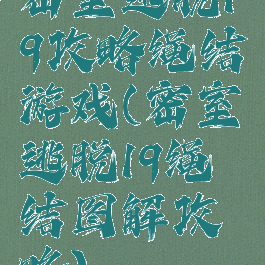 密室逃脱1
9攻略绳结
游戏(密室
逃脱19绳
结图解攻
略)